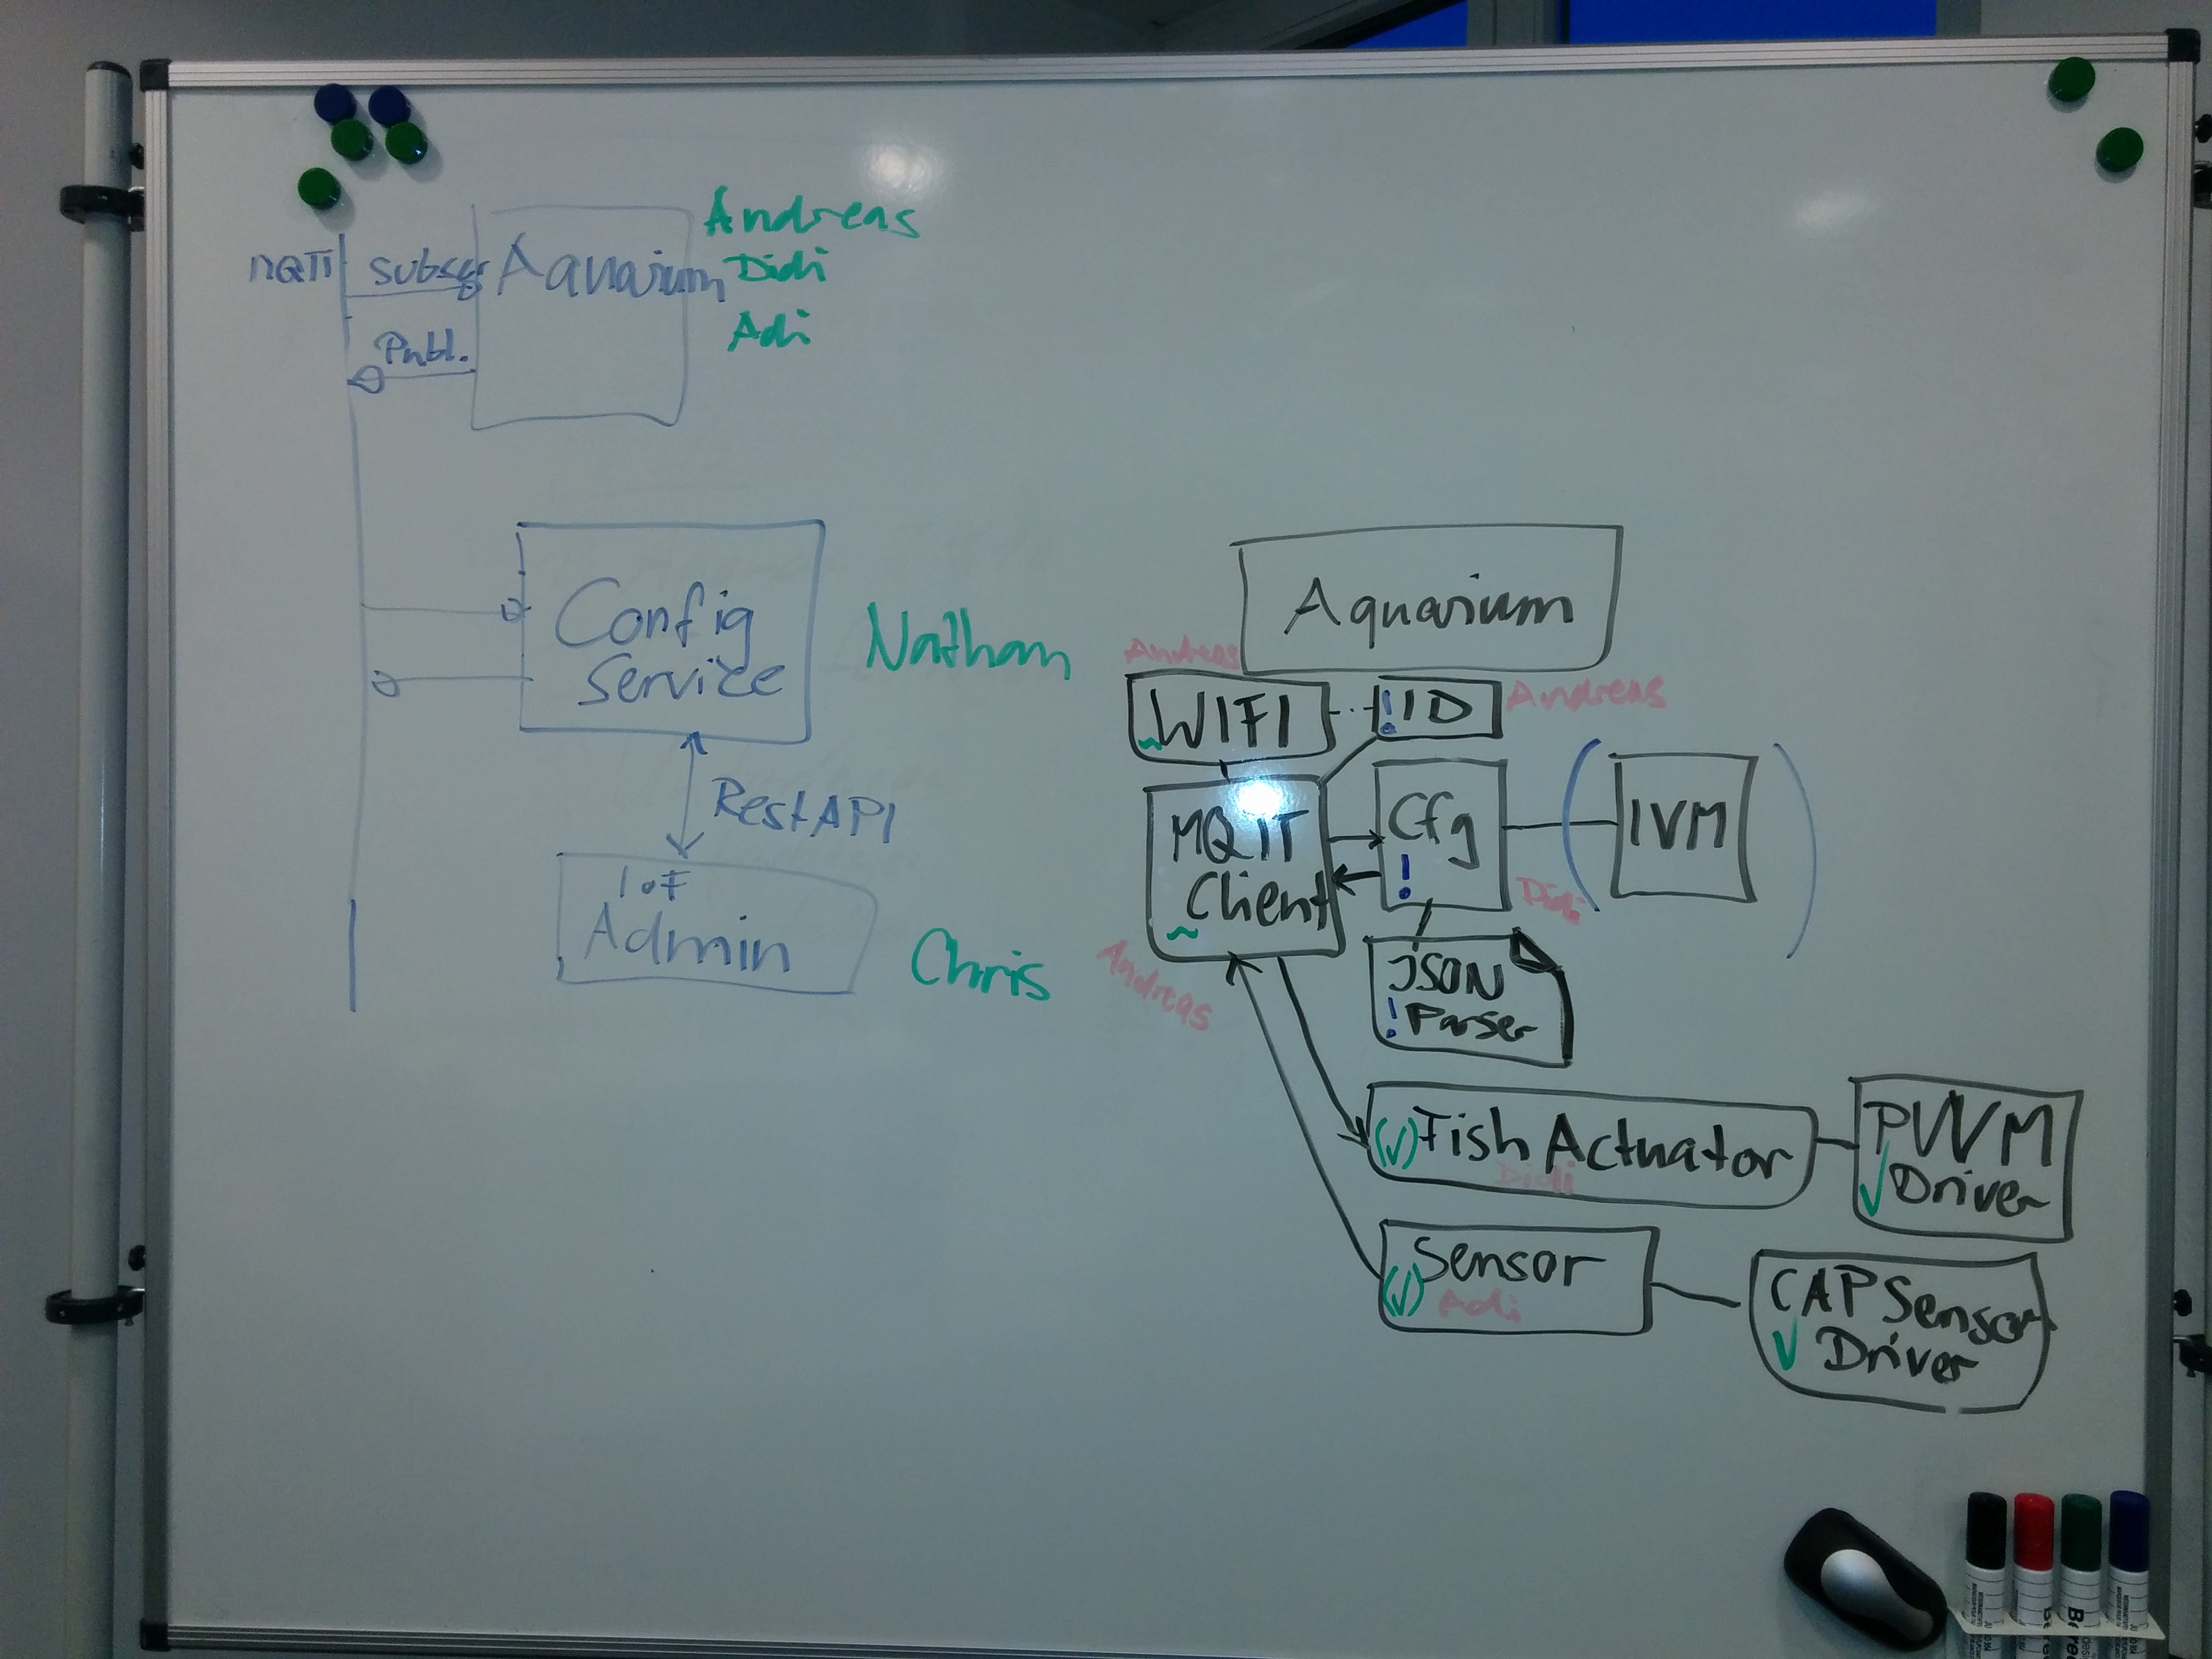 MQTT
Subscr
Aquarium
Publ.
Andreas
Didi
Adi
Config
Service
Nathan
Rest API
IoT
Admin
Chris
Aquarium
Andreas
WIFI
! ID
Andreas
MQTT
Client
Andreas
Cfg
!
Didi
IVM
JSON
! Parser
(✓) Fish Actuator
Didi
PWM
✓ Driver
Sensor
(✓) Adi
CAP Sensor
✓ Driver